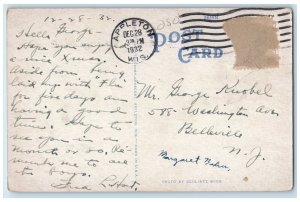 12-28-32
Hello George-
Hope you enjoyed
a nice Xmas.
Aside from being
laid up with Flu
for five days am
doing as of
times. Hope to
see you in a
month or so. Re-
member me to all
the boys.
APPLETON
DEC 28
PM
1932
WIS.
POST
CARD
Mr. George Knobel
588- Washington Ave
Belleville
N. J.
PHOTO BY